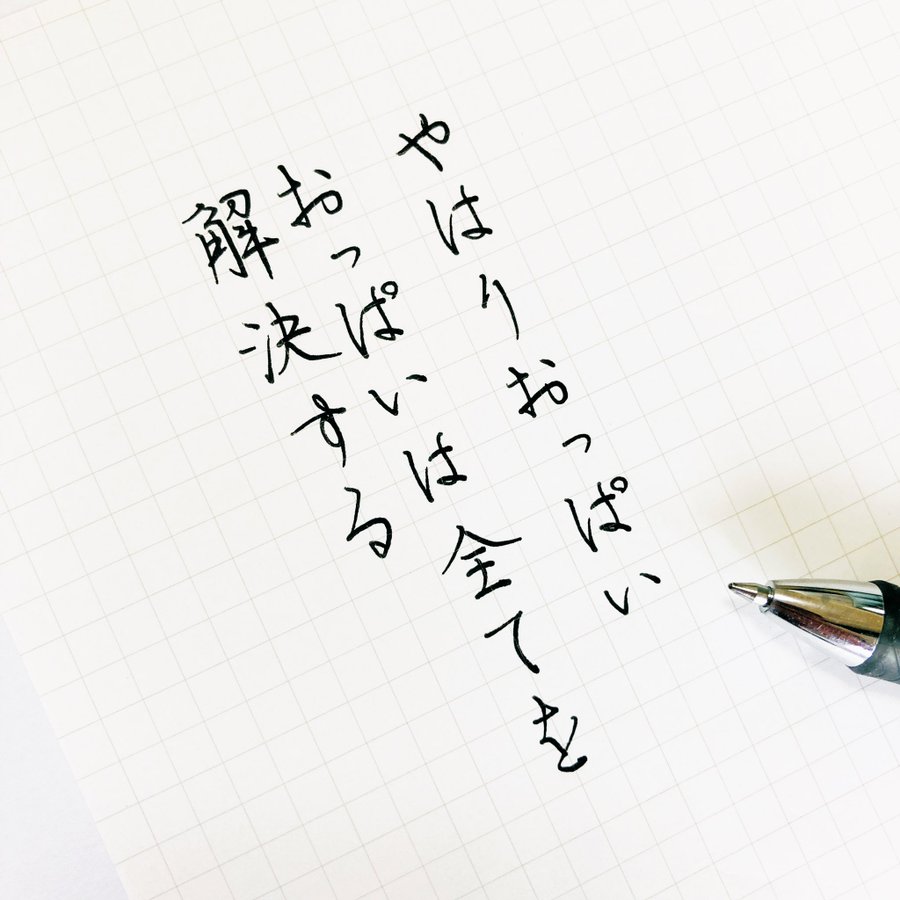 やはりおっぱい
おっぱいは全てを
解決する